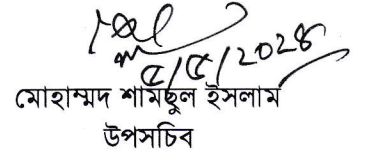 ৫/৫/২০২৪
মোহাম্মদ শামছুল ইসলাম
উপসচিব